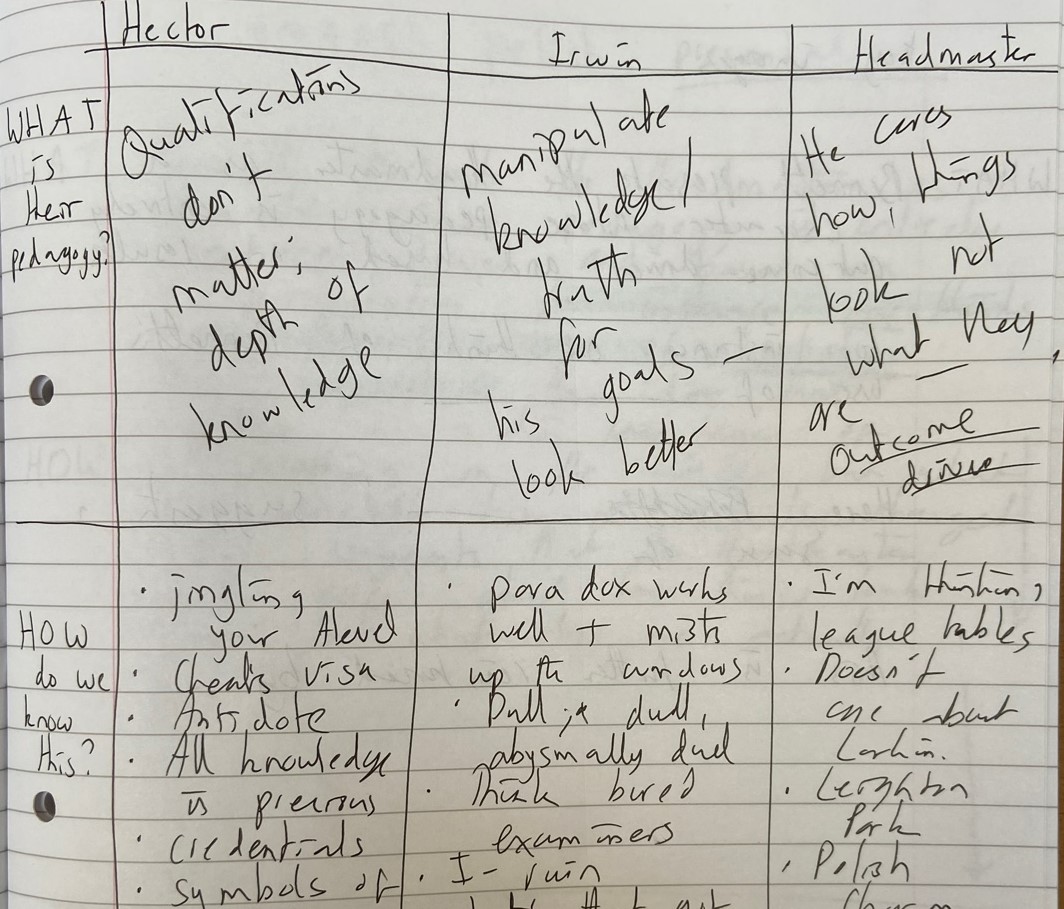 Hector
Irwin
Headmaster
WHAT
is
their
pedagogy?
Qualifications
don't
matter;
depth of
knowledge
manipulate
knowledge/
truth
for
goals —
his
look better
He cares
how, things
look not
what they
are
outcome
driven
HOW
do we
know
this?
· jingling
your Alevel
· Cheats visa
· Antidote
· All knowledge
is precious
· credentials
· symbols of
· paradox works
well + mists
up the windows
· Dull, dull,
abysmally dull
· Think bored
examiners
· I- ruin
· I'm thinking
league tables
· Doesn't
care about
Larkin.
· Leighton
Park
· Polish
Charm